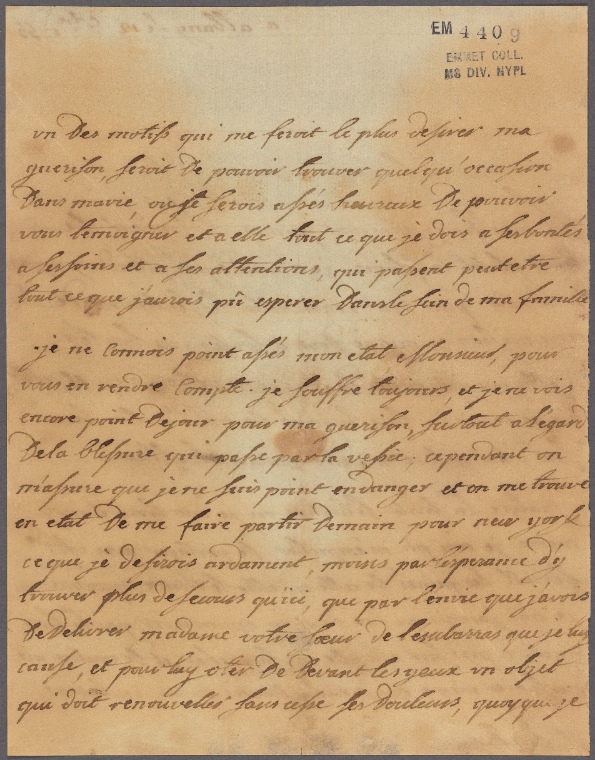 EM 4409
EMMET COLL.
MS DIV. NYPL
un Des motifs qui me feroit le plus desirer ma
guerison, seroit De pouvoir trouver quelqu'occasion
Dans ma vie, ou je serois assés heureux De pouvoir
vous temoigner et a elle tout ce que je dois a ses bontés
a ses soins et a ses attentions, qui passent peut etre
tout ce que j'aurois pû esperer Dans le sein de ma famille
je ne Connois point assés mon etat Monsieur, pour
vous en rendre Compte. je souffre toujours et je ne vois
encore point De jour pour ma guerison, surtout a l'egard
De la blessure qui passe par la vessie; cependant on
m'assure que je ne suis point en danger et on me trouve
en etat De me faire partir Demain pour new york
ce que je desirois ardament, moins par l'esperance d'y
trouver plus de secours qu'ici, que par l'envie que j'avois
De Delivrer madame votre sœur de l'embarras que je luy
cause, et pour luy oter De Devant les yeux un objet
qui doit renouveller sans cesse ses Douleurs, quoyque je